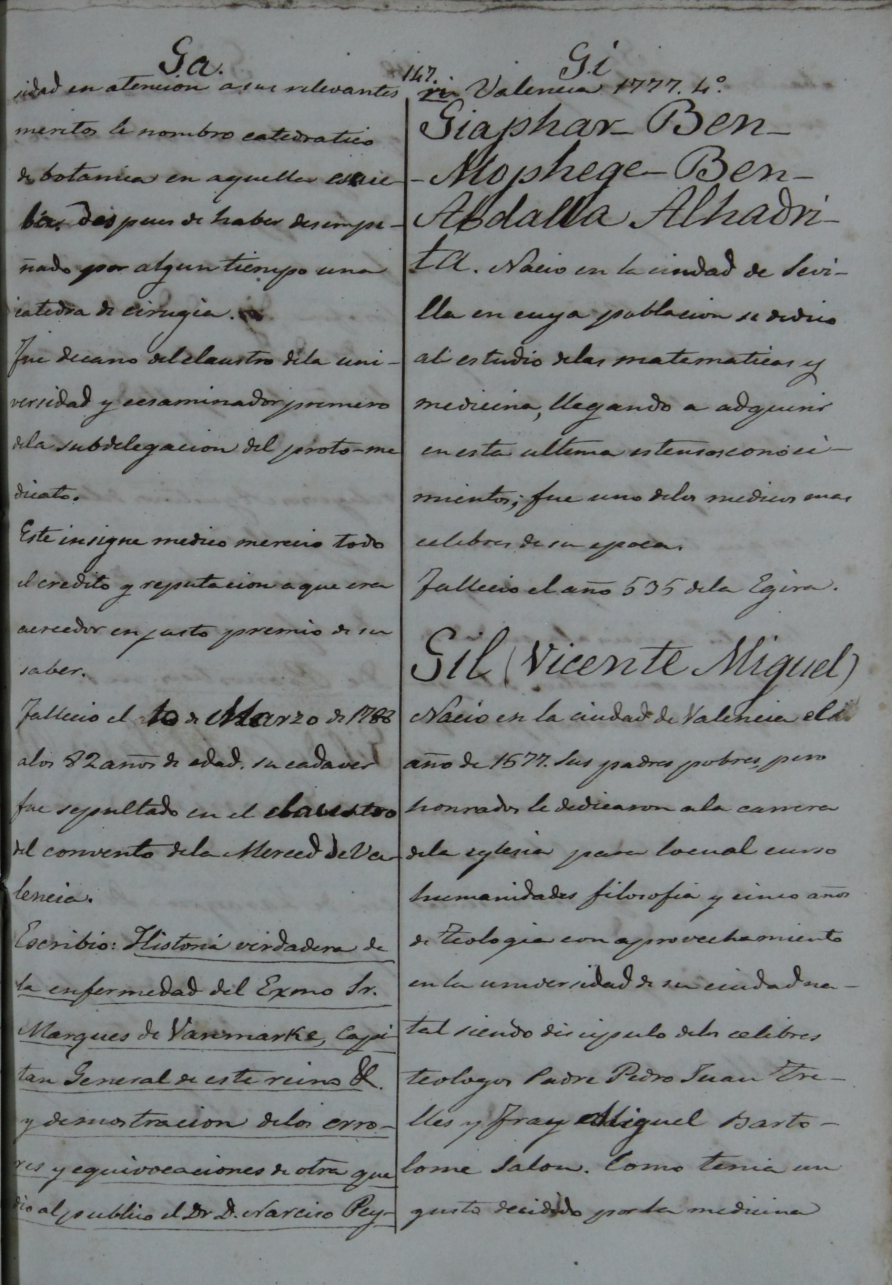 Ga.
sidad en atencion a sus relevantes
meritos le nombro catedratico
de botanica en aquella escue-
la, despues de haber desempe-
ñado por algun tiempo una
catedra de cirugia.
Fue decano del claustro de la uni-
versidad y ecsaminador primero
dela subdelegacion del proto-me
dicato.
Este insigne medico merecio todo
el credito y reputacion a que era
acreedor en justo premio de su
saber.
Fallecio el 10 de Marzo de 1788
alos 82 años de edad. su cadaver
fue sepultado en el claustro
del convento dela Merced de Va-
lencia.
Escribio: Historia verdadera de
la enfermedad del Exmo Sr.
Marques de Vanmarke, Capi
tan General de este reino &.
y demostracion delos erro-
res y equivocaciones de otra que
dio al publico el Dr D. Narciso Pey-
147.
Gi
ri Valencia 1777. 4º.
Giaphar-Ben-
-Mophege-Ben-
Abdalla Alhadri-
ta. Nacio en la ciudad de Sevi-
lla en cuya poblacion se dedico
al estudio delas matematicas y
medicina, llegando a adquirir
en esta ultima estensos conoci-
mientos; fue uno delos medicos mas
celebres de su epoca.
Fallecio el año 535 dela Egira.
Gil (Vicente Miguel)
Nacio en la ciudad de Valencia el
año de 1577. Sus padres pobres, pero
honrados le dedicaron ala carrera
dela eglesia para locual curso
humanidades filosofia y cinco años
de teologia con aprovechamiento
en la universidad de su ciudad na-
tal siendo discipulo delos celebres
teologos Padre Pedro Juan Tre-
lles y Fray Miguel Barto-
lome Salon. Como tenia un
gusto decidido por la medicina